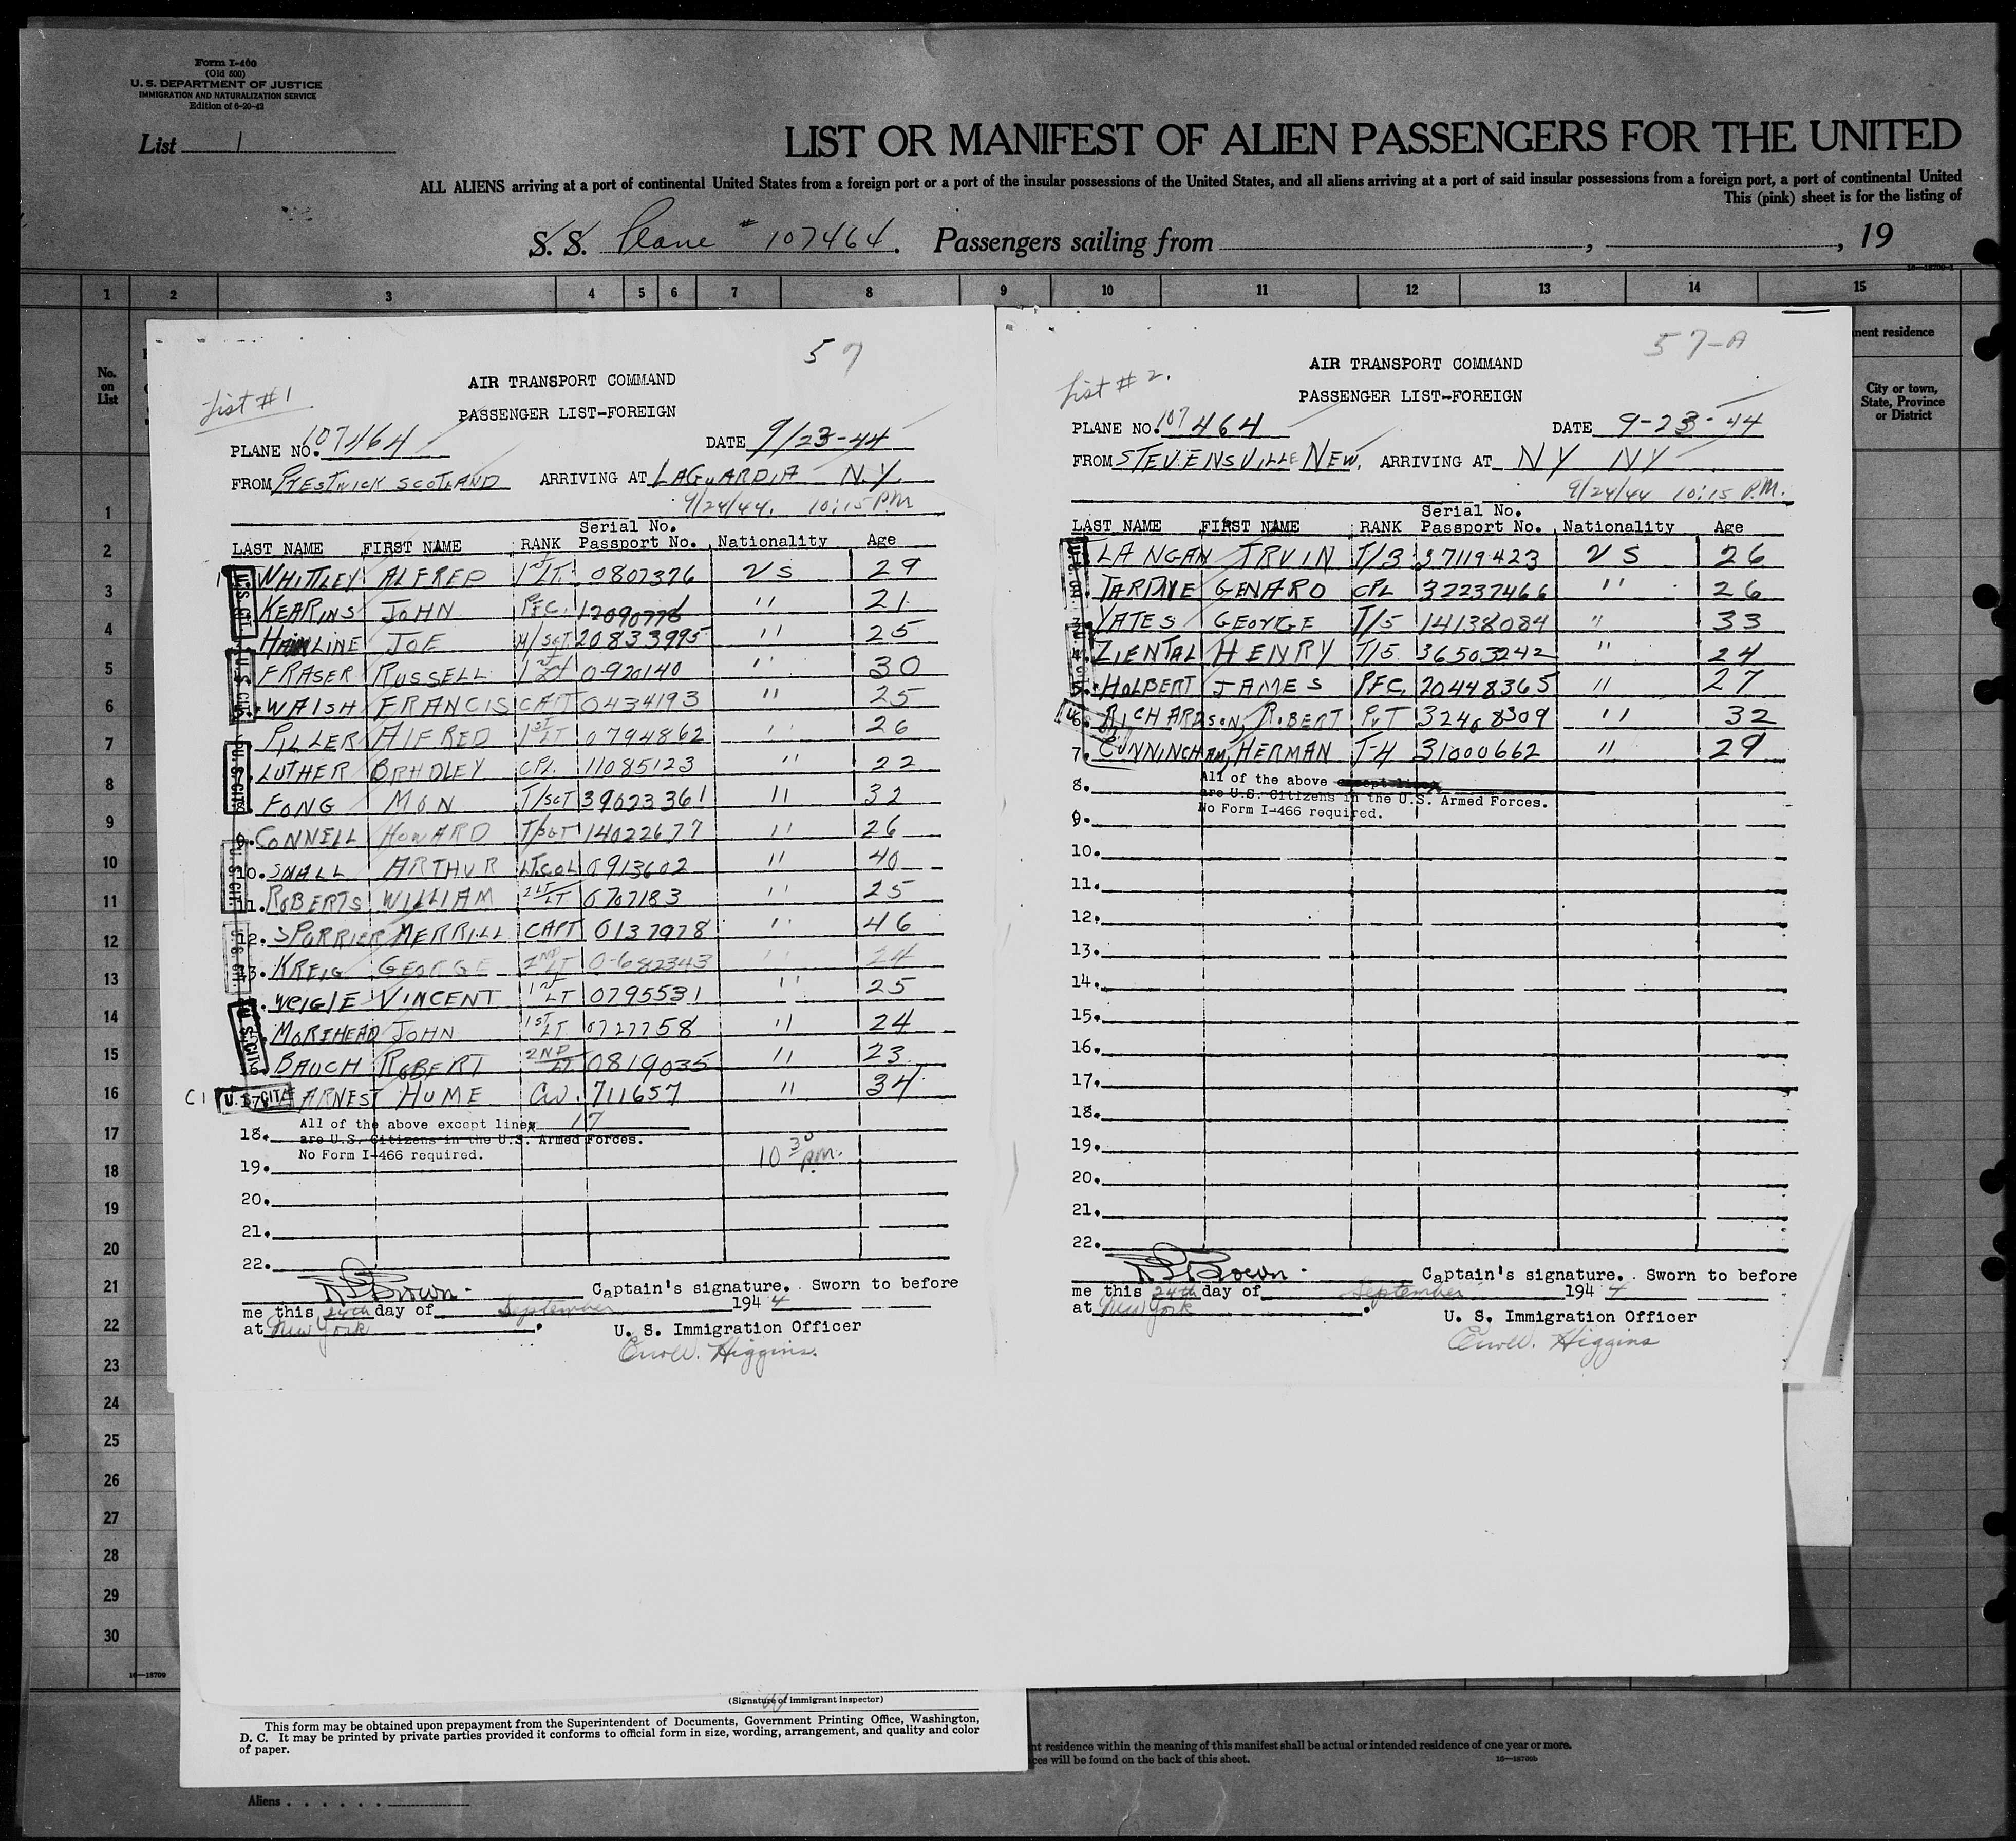 Form I-400
(Old 500)
U. S. DEPARTMENT OF JUSTICE
IMMIGRATION AND NATURALIZATION SERVICE
Edition of 6-20-42
List 1
LIST OR MANIFEST OF ALIEN PASSENGERS FOR THE UNITED
ALL ALIENS arriving at a port of continental United States from a foreign port or a port of the insular possessions of the United States, and all aliens arriving at a port of said insular possessions from a foreign port, a port of continental United
This (pink) sheet is for the listing of
S. S. Plane # 107464. Passengers sailing from , , 19
1 2 3 4 5 6 7 8 9 10 11 12 13 14 15
No. on List
nent residence
City or town, State, Province or District
1
2
3
4
5
6
7
8
9
10
11
12
13
14
15
16
17
18
19
20
21
22
23
24
25
26
27
28
29
30
16—18700
57
List #1
AIR TRANSPORT COMMAND
PASSENGER LIST-FOREIGN
PLANE NO. 107464 DATE 9/23-44
FROM PRESTWICK SCOTLAND ARRIVING AT LAGUARDIA N.Y.
9/24/44. 10:15 PM
Serial No.
LAST NAME FIRST NAME RANK Passport No. Nationality Age
WHITLEY ALFRED 1st LT. 0807376 US 29
KEARINS JOHN PFC. 12090776 " 21
HAMLINE JOE M/SGT 20833995 " 25
FRASER RUSSELL 1st Lt 0-920140 " 30
WALSH FRANCIS CAPT 0434193 " 25
PILLER ALFRED 1ST LT 0794862 " 26
LUTHER BRADLEY CPL. 11085123 " 22
FONG MON T/SGT 39023361 " 32
9. CONNELL HOWARD T/SGT 14022677 " 26
10. SMALL ARTHUR LT.COL 0913602 " 40
11. ROBERTS WILLIAM 2 LT 0707183 " 25
12. SPURRIER MERRILL CAPT 0137978 " 46
13. KREIG GEORGE 2ND LT 0-682343 " 24
WEIGLE VINCENT 1st LT 0795531 " 25
MOREHEAD JOHN 1ST LT. 0727758 " 24
BAUCH ROBERT 2ND LT 0819035 " 23
C1 U. S. CIT. 17. EARNEST HUME CIV. 711657 " 34
All of the above except line 17
18. are U.S. Citizens in the U.S. Armed Forces.
No Form I-466 required.
19. 10 30 P.M.
20.
21.
22.
Captain's signature. Sworn to before
me this 24th day of September 1944
at New York.
U. S. Immigration Officer
Higgins.
57-A
List # 2.
AIR TRANSPORT COMMAND
PASSENGER LIST-FOREIGN
PLANE NO. 107464 DATE 9-23-44
FROM STEVENSVILLE NEW. ARRIVING AT NY NY
9/24/44 10:15 P.M.
Serial No.
LAST NAME FIRST NAME RANK Passport No. Nationality Age
LANGAN IRVIN T/3 37119423 US 26
GENARO CPL 32237466 " 26
3. YATES GEORGE T/5 14138084 " 33
4. ZIENTAL HENRY T/5 36503242 " 24
5. HOLBERT JAMES PFC. 20448365 " 27
6. RICHARDSON, ROBERT PVT 32468309 " 32
7. CUNNINGHAM, HERMAN T-4 31000662 " 29
All of the above except line
8. are U.S. Citizens in the U.S. Armed Forces.
No Form I-466 required.
9.
10.
11.
12.
13.
14.
15.
16.
17.
18.
19.
20.
21.
22.
Captain's signature. Sworn to before
me this 24th day of September 1944
at New York.
U. S. Immigration Officer
Higgins
(Signature of immigrant inspector)
This form may be obtained upon prepayment from the Superintendent of Documents, Government Printing Office, Washington,
D. C. It may be printed by private parties provided it conforms to official form in size, wording, arrangement, and quality and color
of paper.
nt residence within the meaning of this manifest shall be actual or intended residence of one year or more.
ces will be found on the back of this sheet. 16—18700b
Aliens